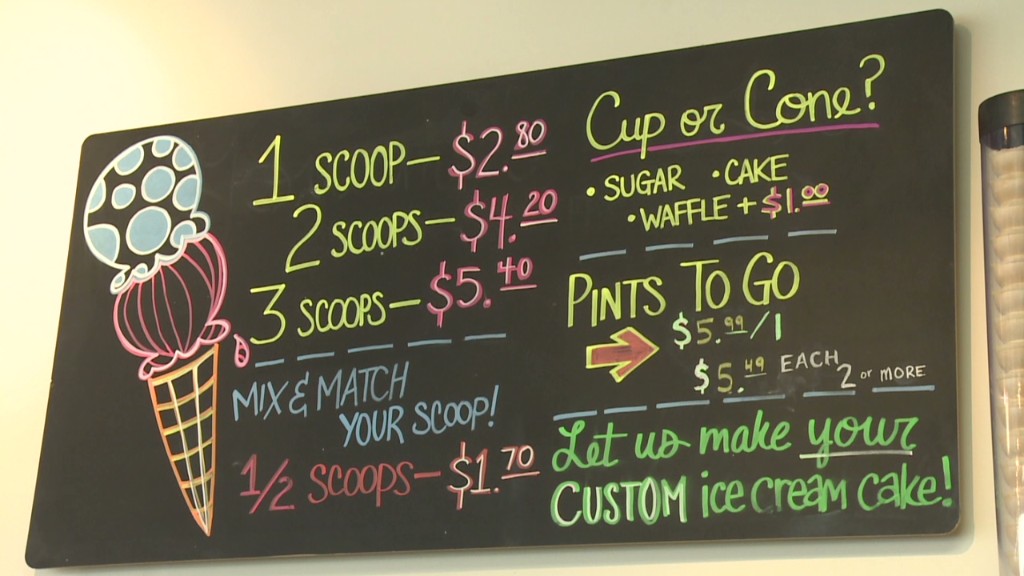 1 SCOOP - $2.80
2 SCOOPS - $4.20
3 SCOOPS - $5.40
MIX & MATCH
YOUR SCOOP!
1/2 SCOOPS - $1.70
Cup or Cone?
• SUGAR • CAKE
• WAFFLE + $1.00
PINTS TO GO
$5.99/1
$5.49 EACH 2 or MORE
Let us make your
CUSTOM ice cream cake!